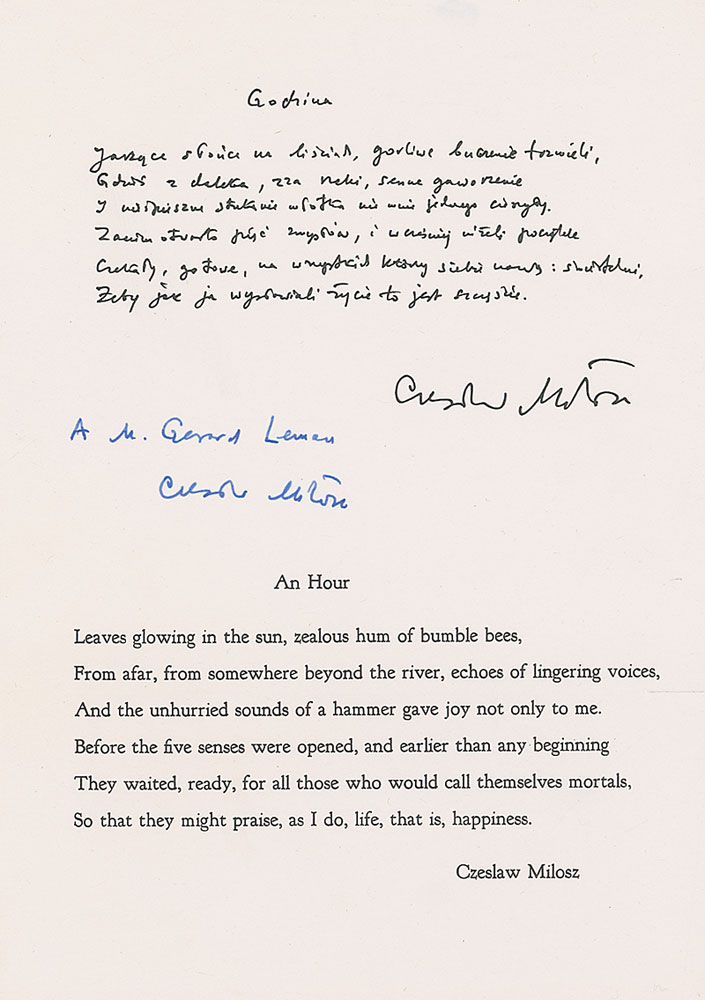 Godzina
Jarzące słońce na liściach, gorliwe buczenie trzmieli,
Gdzieś z daleka, zza rzeki, senne gaworzenie
I niespieszne stukanie młotka nie mnie jednego cieszyły.
Zanim otwarto pięć zmysłów, i wcześniej niżeli początek
Czekały, gotowe, na wszystkich którzy siebie nazwą: śmiertelni,
Żeby jak ja wysławiali życie to jest szczęście.
Czesław Miłosz
A M. Gerard Leman
Czesław Miłosz
An Hour
Leaves glowing in the sun, zealous hum of bumble bees,
From afar, from somewhere beyond the river, echoes of lingering voices,
And the unhurried sounds of a hammer gave joy not only to me.
Before the five senses were opened, and earlier than any beginning
They waited, ready, for all those who would call themselves mortals,
So that they might praise, as I do, life, that is, happiness.
Czeslaw Milosz